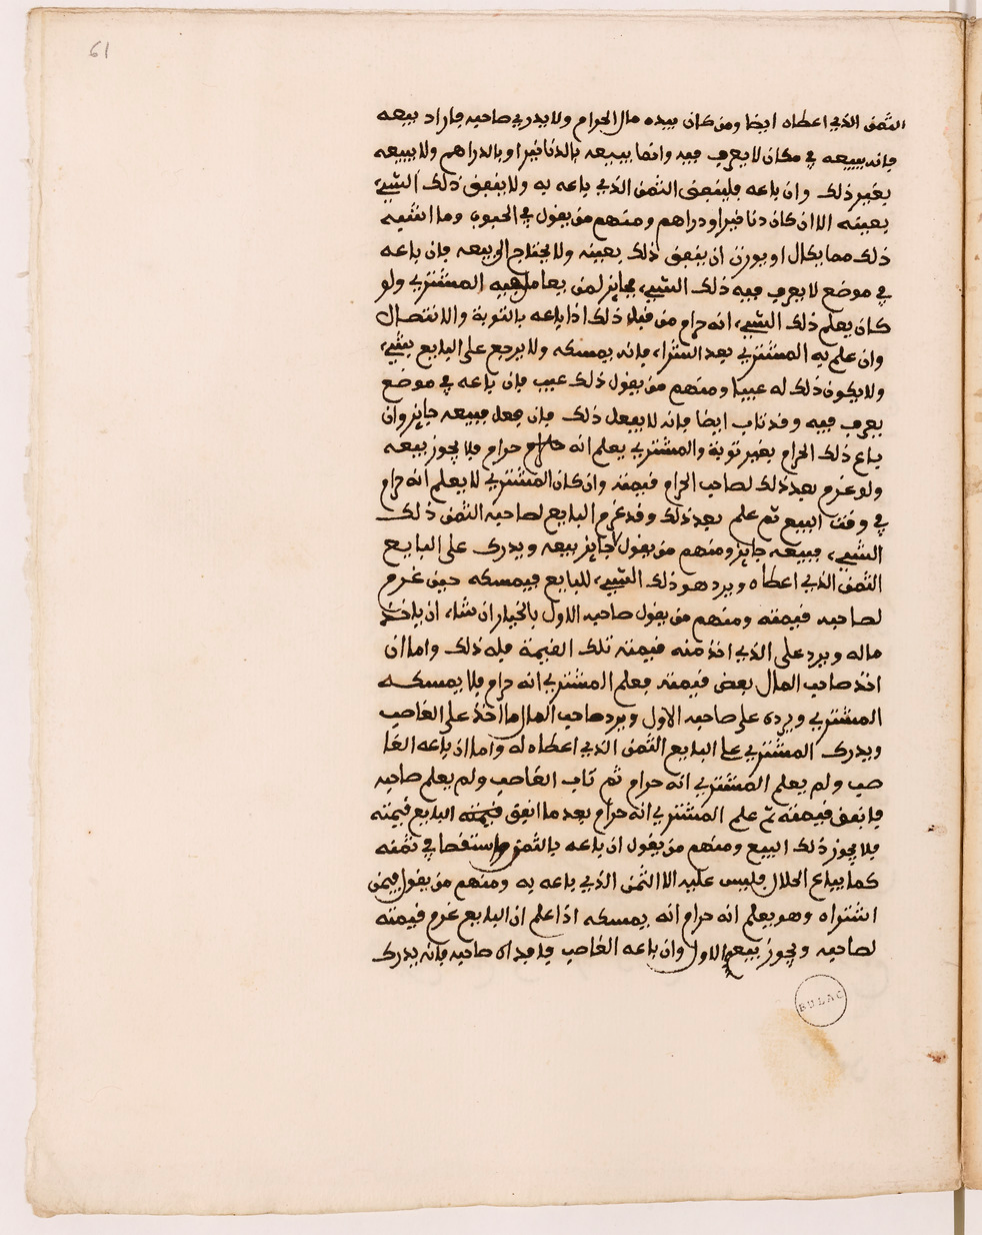 61
الثمن الذي اعطاه ايضا ومن كان بيده مال الحرام ولا يدري صاحبه فاراد بيعه
فانه يبيعه في مكان لا يعرف فيه وانما يبيعه بالدنانير او بالدراهم ولا يبيعه
بغير ذلك وان باعه فلينفق الثمن الذي باعه به ولا ينفق ذلك الشيء
بعينه الا ان كان دنانير او دراهم ومنهم من يقول في الحبوب وما اشبه
ذلك مما يكال او يوزن ان ينفق ذلك بعينه ولا يحتاج الى بيعه فان باعه
في موضع لا يعرف فيه ذلك الشيء فجايز لمن يعامله فيه المشتري ولو
كان يعلم ذلك الشيء انه حرام من قبل ذلك اذا باعه بالتوبة والانتصال
وان علم به المشتري بعد الشراء فانه يمسكه ولا يرجع على البايع بشيء
ولا يكون ذلك له عيبا ومنهم من يقول ذلك عيب فان باعه في موضع
يعرف فيه وقد تاب ايضا فانه لا يفعل ذلك فان فعل فبيعه جايز وان
باع ذلك الحرام بغير توبة والمشتري يعلم انه حرام فلا يجوز بيعه
ولو غرم بعد ذلك لصاحب الحرام قيمته وان كان المشتري لا يعلم انه حرام
في وقت البيع ثم علم بعد ذلك وقد غرم البايع لصاحبه الثمن ذلك
الشيء فبيعه جايز ومنهم من يقول لا جايز بيعه ويدرك على البايع
الثمن الذي اعطاه ويرد هو ذلك الشيء للبايع فيمسكه حين غرم
لصاحبه قيمته ومنهم من يقول صاحبه الاول بالخيار ان شاء ان ياخذ
ماله ويرد على الذي اخذ منه قيمته تلك القيمة فله ذلك واما ان
اخذ صاحب المال بعض قيمته فعلم المشتري انه حرام فلا يمسكه
المشتري ويرده على صاحبه الاول ويرد صاحب المال ما اخذ على الغاصب
ويدرك المشتري على البايع الثمن الذي اعطاه له واما ان باعه الغا
صب ولم يعلم المشتري انه حرام ثم تاب الغاصب ولم يعلم صاحبه
فانفق قيمته ثم علم المشتري انه حرام بعد ما انفق البايع قيمته
فلا يجوز ذلك البيع ومنهم من يقول ان باعه بالثمن واستقصا في ثمنه
كما يباع الحلال فليس عليه الا الثمن الذي باعه به ومنهم من يقول فيمن
اشتراه وهو يعلم انه حرام انه يمسكه اذا علم ان البايع غرم قيمته
لصاحبه ويجوز بيعه الاول وان باعه الغاصب صاحبه فانه يدرك
BULAC